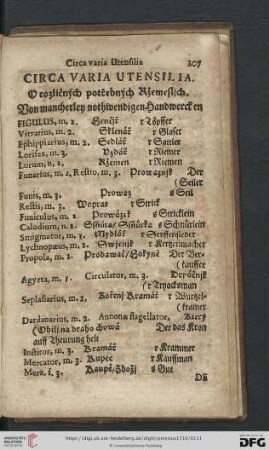 Circa varia Utensilia 207
CIRCA VARIA UTENSILIA.
O rozličných potřebných Ržemeslích.
Von mancherley nothwendigen Handwercken
FIGULUS, m. 2. Henčjř r Töpffer
Vitrarius, m. 2. Sklenář r Glaser
Ephippiarius, m. 2. Sedlář r Sattler
Lorifex, m. 3. Uzdář r Riemer
Lorum, n. 2. Ržemen r Riemen
Funarius, m. 2. Restio, m. 3. Prowaznjk Der
(Seiler
Funis, m. 3. Prowaz s Seil
Restis, m. 3. Wopraz r Strick
Funiculus, m. 2. Prowázek s Stricklein
Calodium, n. 2. Ssňůra / Ssňůrka s Schnürlein
Smigmator, m. 3. Mydlář r Seiffensieder
Lychnopœus, m. 2. Swjcník r Kertzenmacher
Propola, m. 2. Prodawač / Hokyně Der Ver-
(kauffer
Agyrta, m. 1. Circulator, m. 3. Dryáčnjk
(r Tryacksman
Seplasiarius, m. 2. Kořenj Kramář r Würtzel-
(kramer
Dardanarius, m. 2. Annonæ flagellator, Který
Obilj na draho chowá Der das Korn
auff Theurung helt
Institor, m. 3. Kramář r Krammer
Mercator, m. 3. Kupec r Kauffman
Merx, f. 3. Kaupě / Zbožj s Gut
http://digi.ub.uni-heidelberg.de/diglit/
UNIVERSITÄTS-BIBLIOTHEK HEIDELBERG
DFG